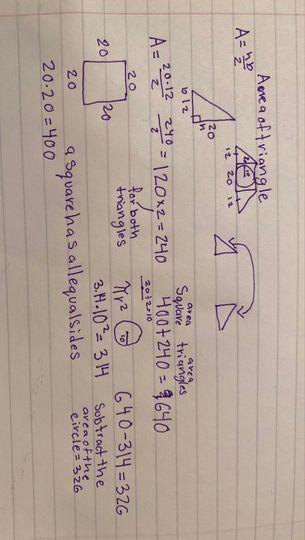 Area of triangle
A = hb/2
12 20 12
20
b 12
20
h
A = 20·12/2 240/2 = 120 x 2 = 240
for both
triangles
20
20
20
20
20·20 = 400
a square has all equal sides
area area
Square triangles
400 + 240 = 640
20÷2=10
πr² 10
3.14·10² = 314
640 - 314 = 326
Subtract the
area of the
circle = 326